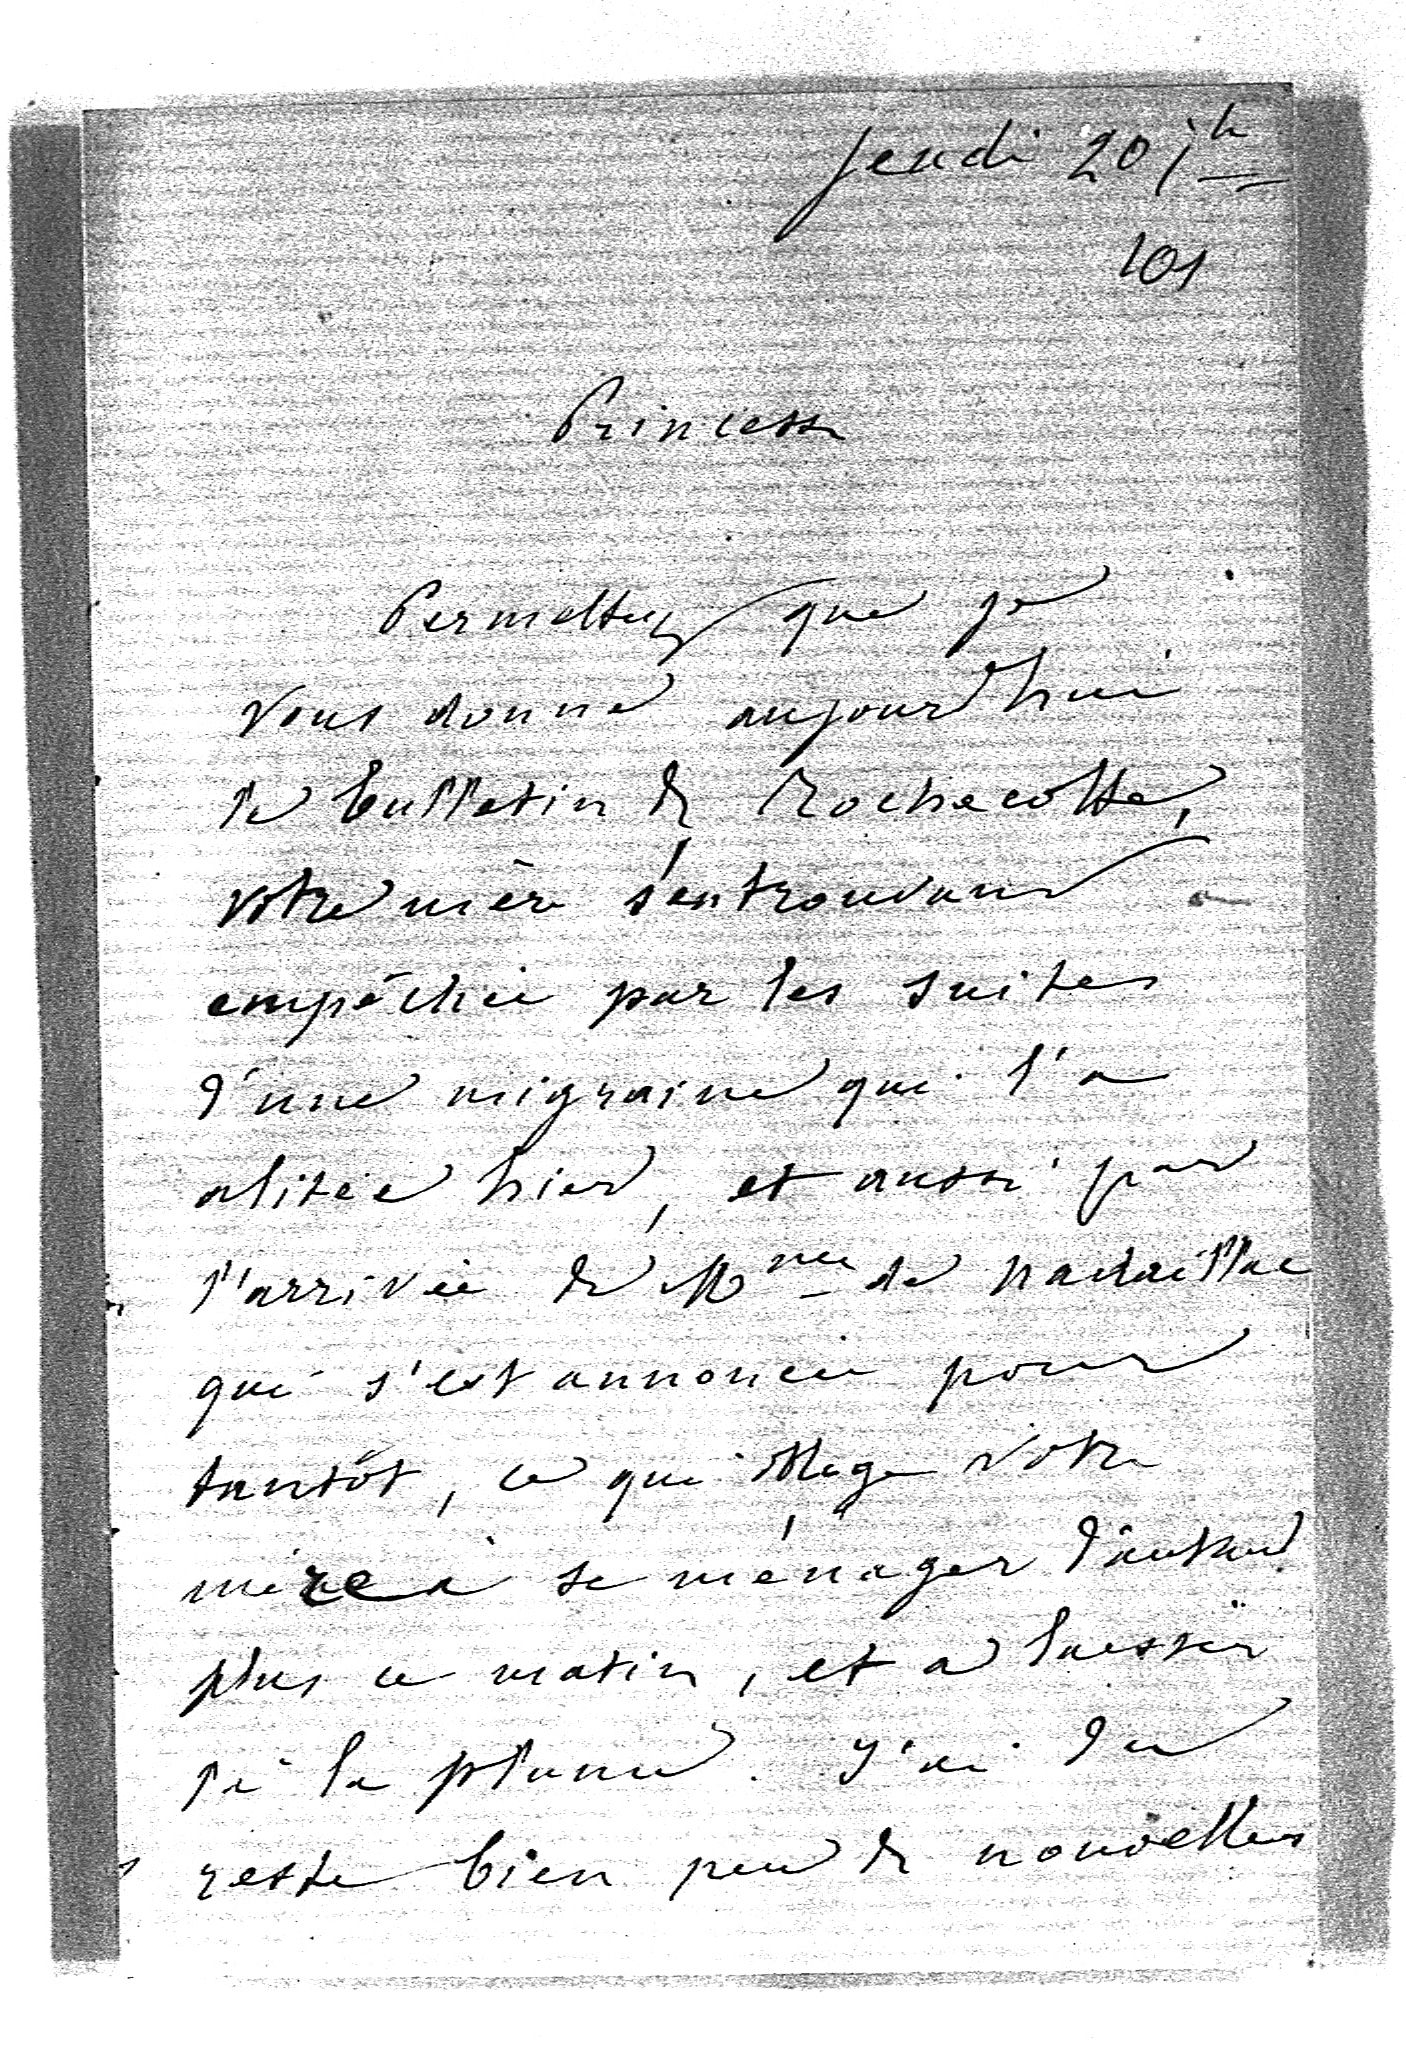 Jeudi 20 jh
101
Princesse
Permettez que je
vous donne aujourd'hui
le bulletin de Rochecotte,
votre mère s'en trouvant
empêchée par les suites
d'une migraine qui l'a
alitée hier, et aussi par
l'arrivée de Mme de Nadaillac
qui s'est annoncée pour
tantôt, ce qui oblige votre
mère à se ménager d'autant
plus ce matin, et à laisser
là la plume. J'ai du
reste bien peu de nouvelles